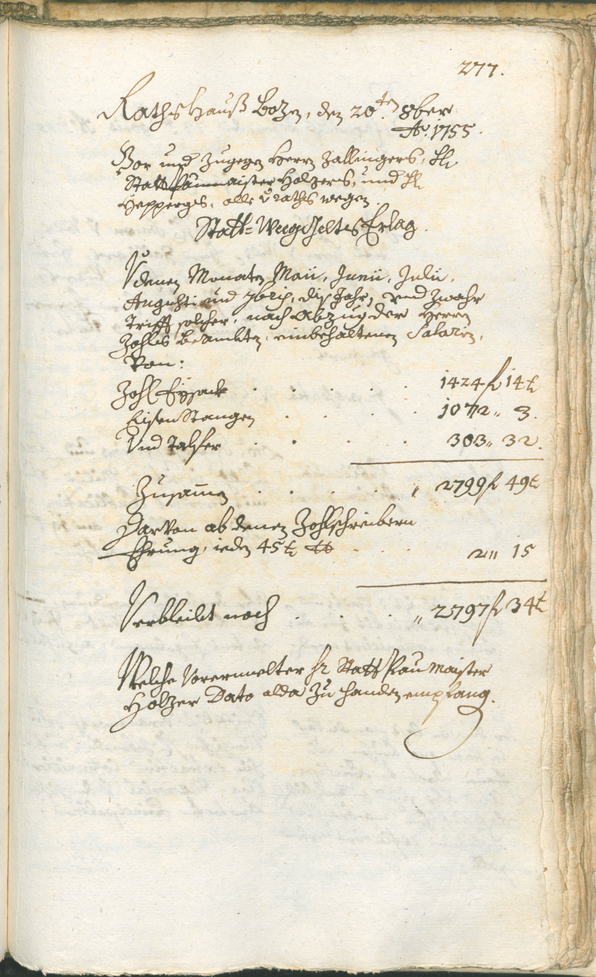 277.
Rathshauß Bozen, den 20ten 8ber
Ao. 1755.
Vor und Zugegen Herrn Zallingers, H:
Stattpaumaister Holzers, und H:
Hepperger, alle v: raths wegen
Statt-Weeggeltes Erlag.
Von denen Monaten Maii, Junii, Julii,
Augusti und 7bris, diß Jahr, und zwahr
Trifft solcher, nach abzug der Herrn
Zohls beambten einbehaltenen Salarien,
Von:
Zohl Eysack . . . . 1424 f 14 k
Eisen Stangen . . . . 1072 " 3.
Und Talfer . . . . 303 " 32.
Zusamen . . . . " 2799 f 49 k
Darvon ab denen Zohlschreibern
Ehrung, ieden 45 k . . . . 2 " 15
Verbleibt noch . . . . " 2797 f 34 k
Welche vorermelter H: Statt Paumaister
Holzer Dato alda zu handen empfang.